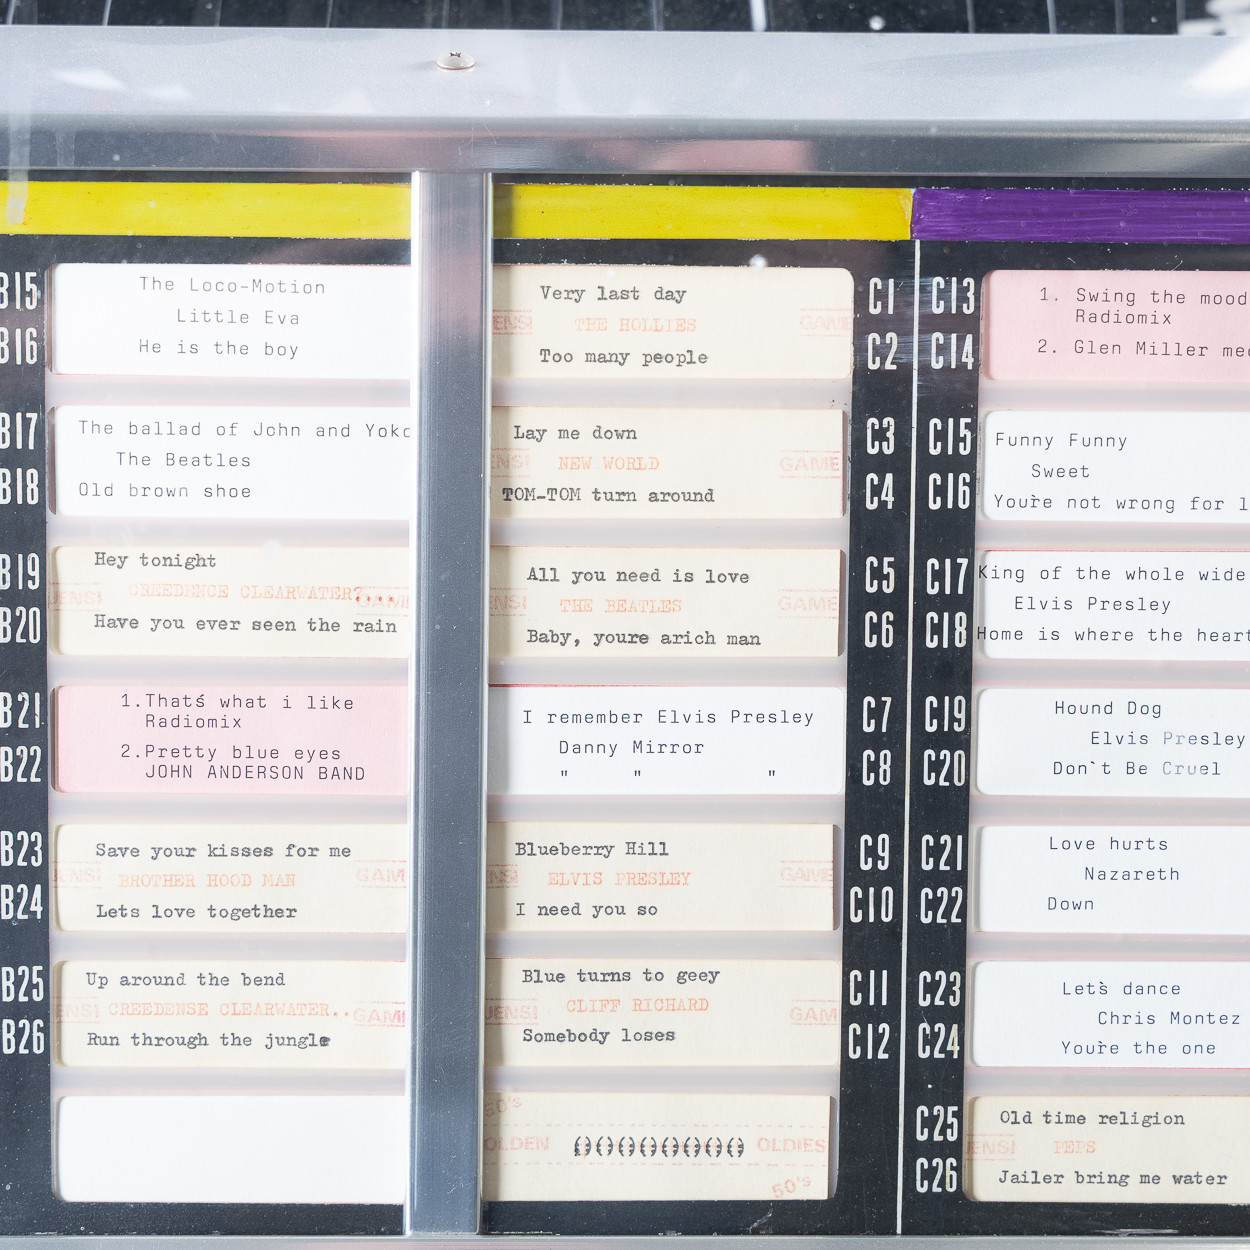 B15
B16
The Loco-Motion
Little Eva
He is the boy
B17
B18
The ballad of John and Yoko
The Beatles
Old brown shoe
B19
B20
Hey tonight
CREEDENCE CLEARWATER?....
JENSI GAME
Have you ever seen the rain
B21
B22
1.Thatś what i like
Radiomix
2.Pretty blue eyes
JOHN ANDERSON BAND
B23
B24
Save your kisses for me
ENSI BROTHER HOOD MAN GAM
Lets love together
B25
B26
Up around the bend
ENSI CREEDENSE CLEARWATER.. GAM
Run through the jungle
Very last day
ENSI THE HOLLIES GAME
Too many people
C1
C2
Lay me down
ENSI NEW WORLD GAME
TOM-TOM turn around
C3
C4
All you need is love
ENSI THE BEATLES GAME
Baby, youre arich man
C5
C6
I remember Elvis Presley
Danny Mirror
" " "
C7
C8
Blueberry Hill
NSI ELVIS PRESLEY GAME
I need you so
C9
C10
Blue turns to geey
JENSI CLIFF RICHARD GAM
Somebody loses
C11
C12
50's
OLDEN ()()()()()()()()() OLDIES
50's
C13
C14
1. Swing the mood
Radiomix
2. Glen Miller med
C15
C16
Funny Funny
Sweet
You`re not wrong for l
C17
C18
King of the whole wide
Elvis Presley
Home is where the heart
C19
C20
Hound Dog
Elvis Presley
Don`t Be Cruel
C21
C22
Love hurts
Nazareth
Down
C23
C24
Let`s dance
Chris Montez
You`re the one
C25
C26
Old time religion
ENSI PEPS
Jailer bring me water